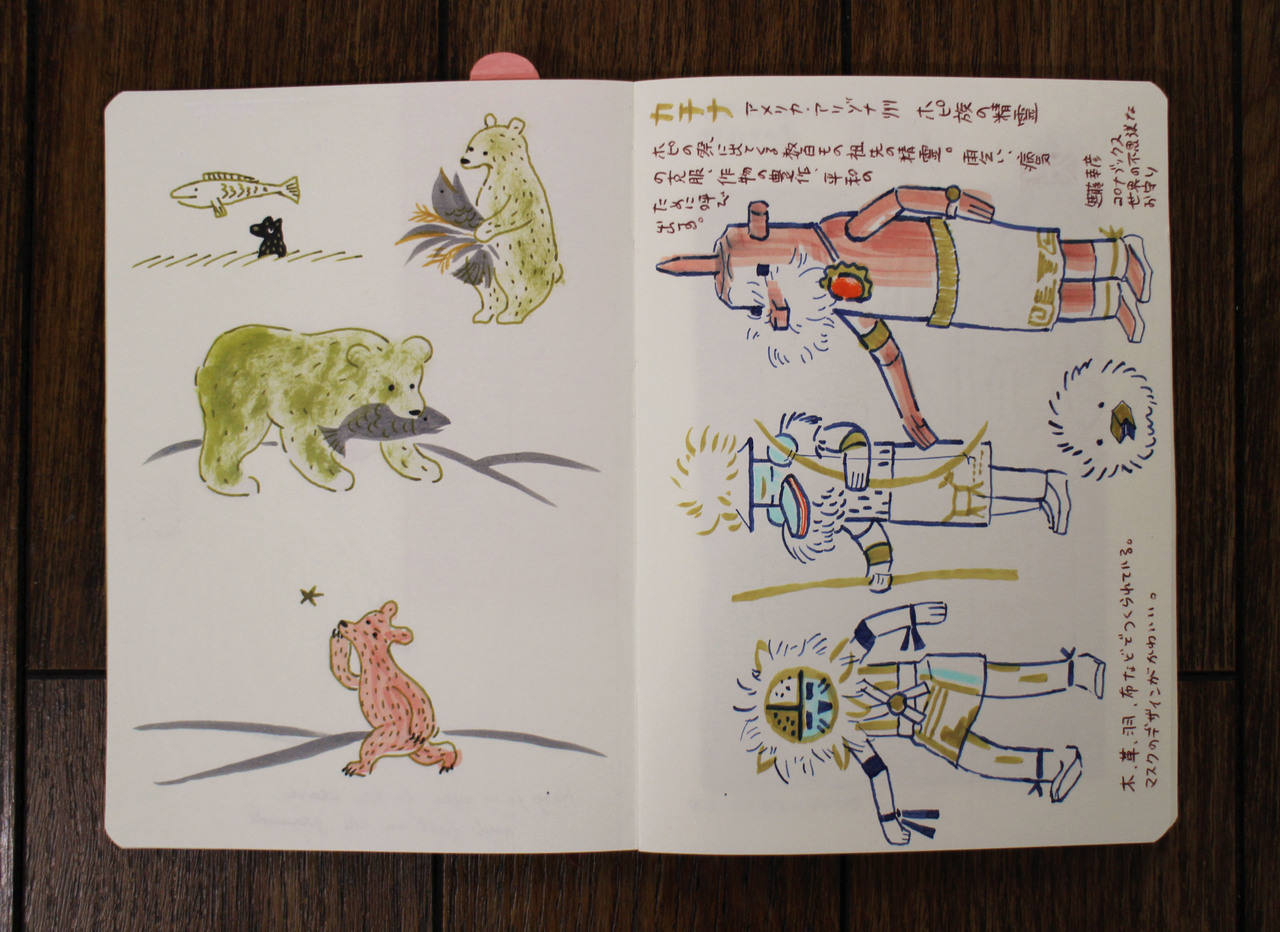 カチナ アメリカ・アリゾナ州 ホピ族の精霊
ホピの祭に出てくる数百もの祖先の精霊。雨乞い、病気
の克服、作物の豊作、平和の
ために呼び
出す。
コロナブックス
世界の不思議な
お守り
木、草、羽、布などでつくられている。
マスクのデザインがかわいい。